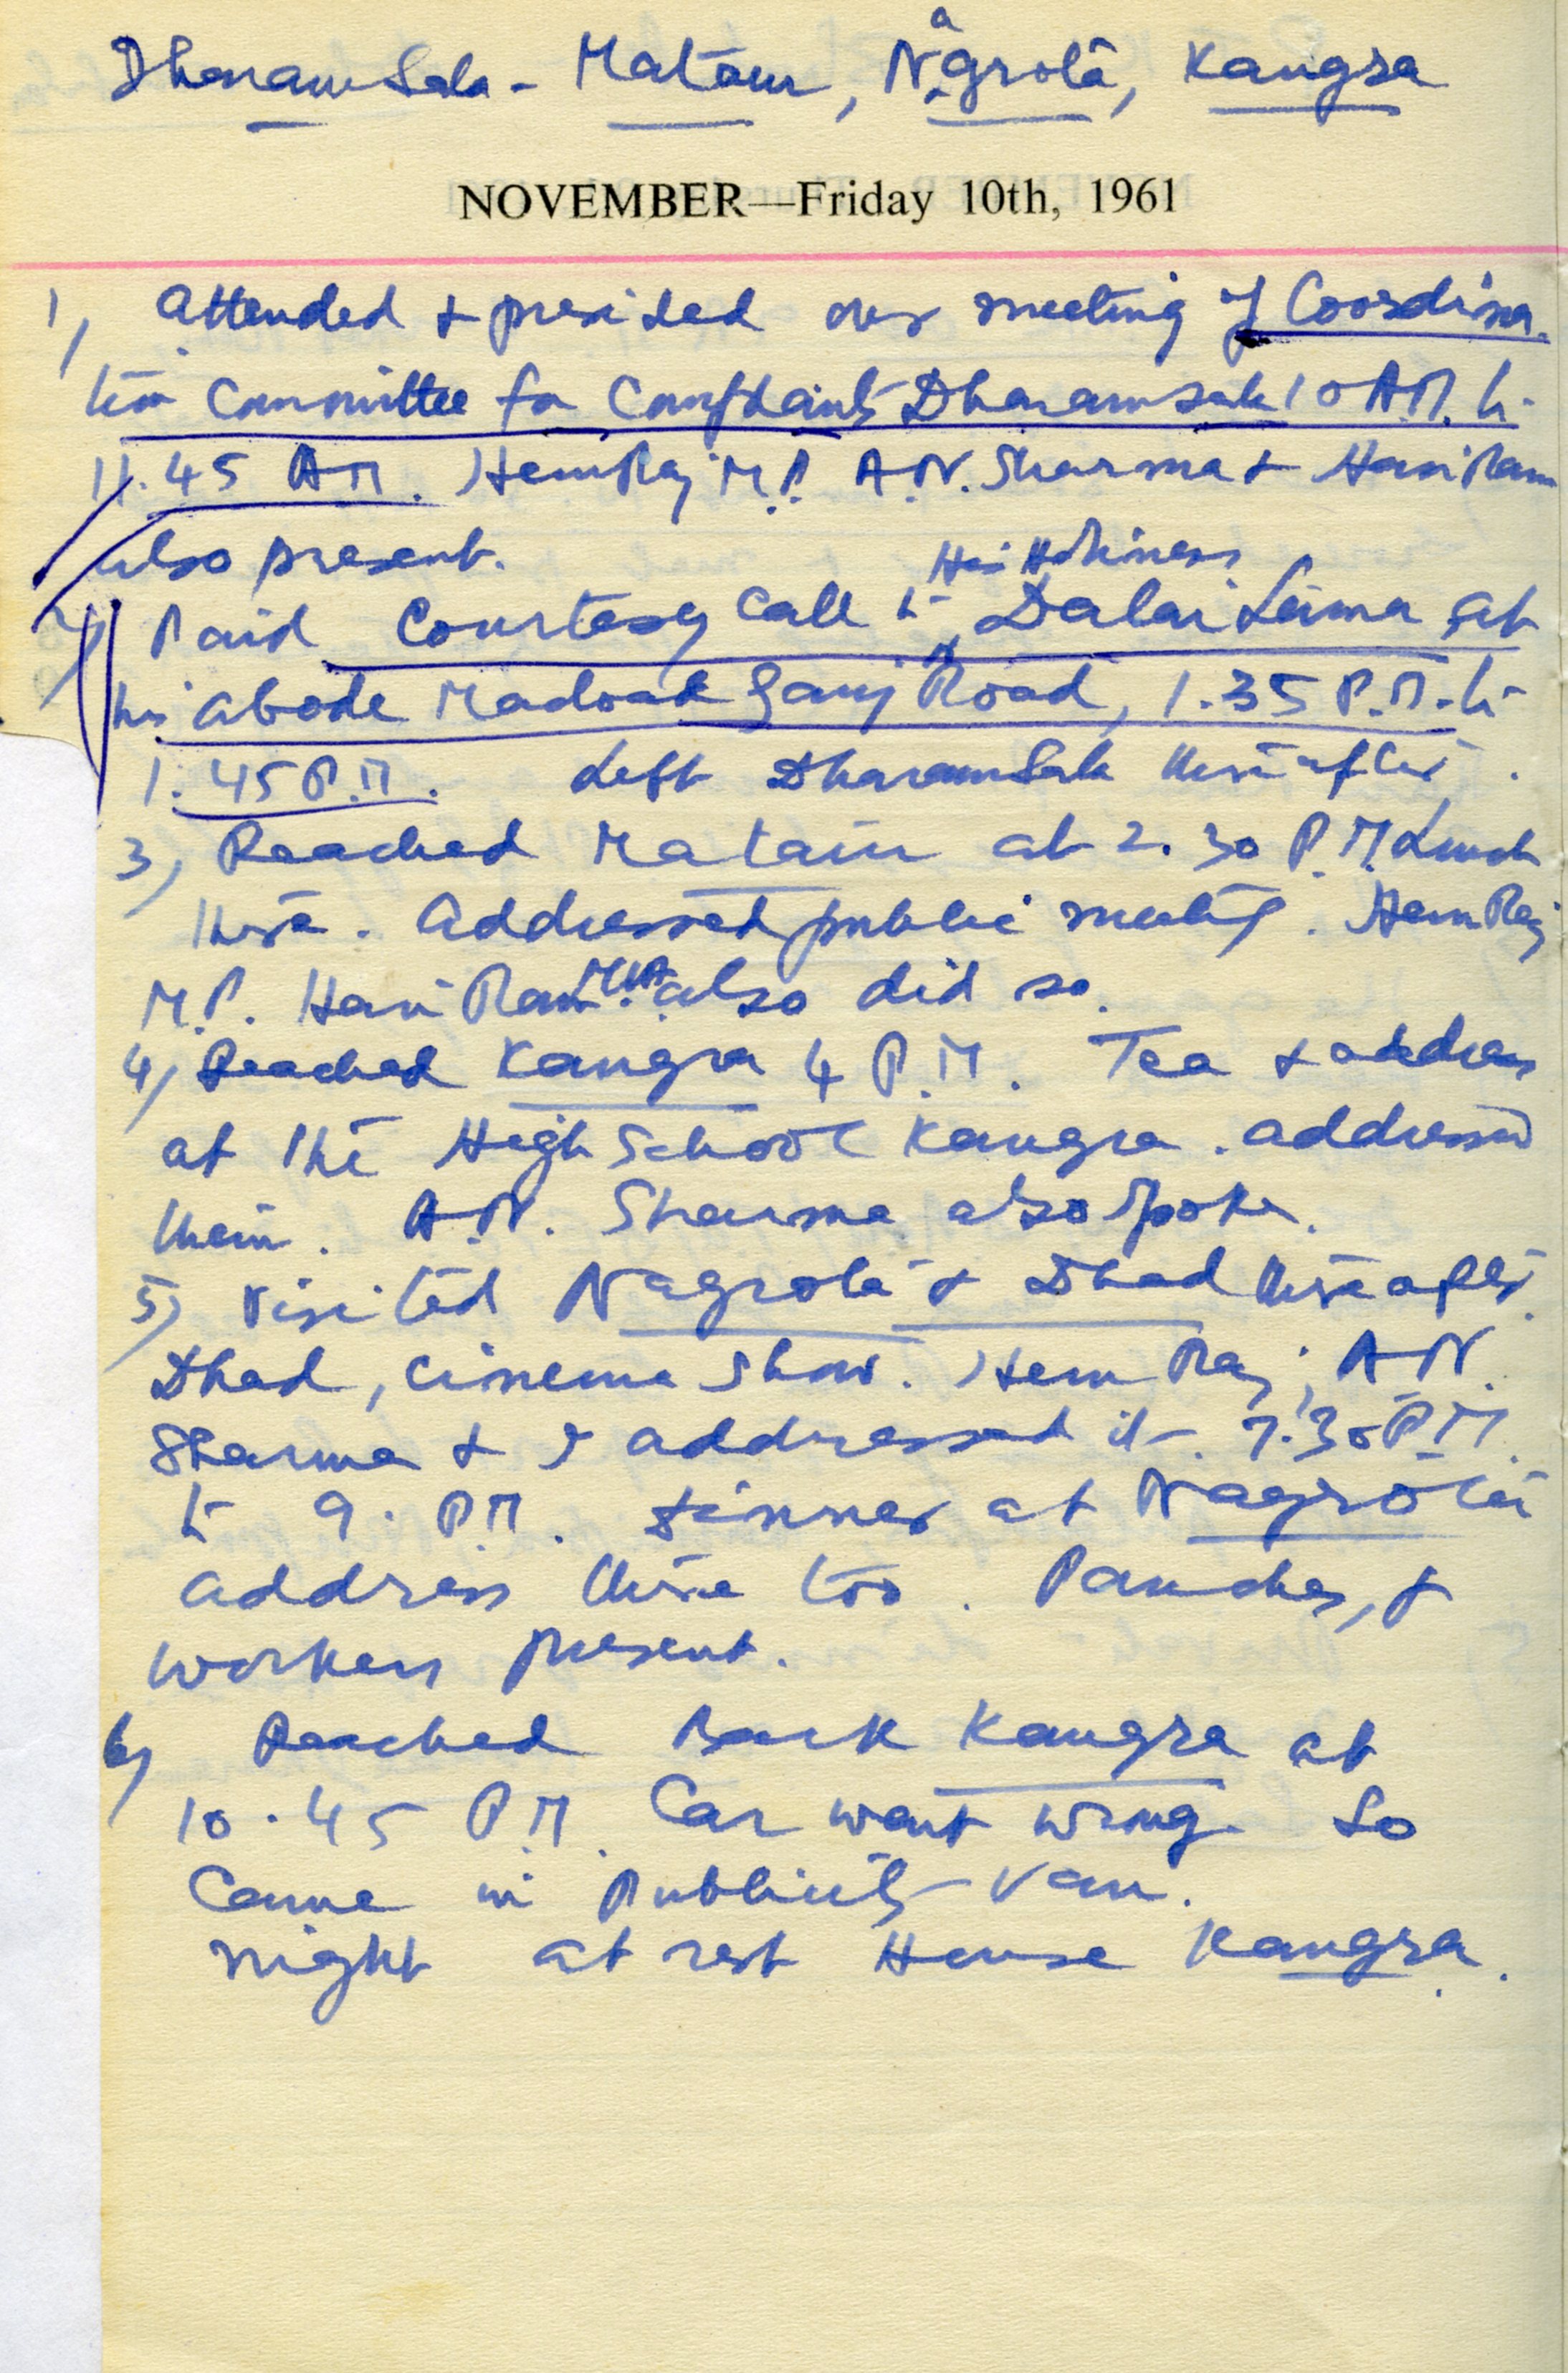 Dharamsala - Mataur, Nagrota, Kangra
NOVEMBER—Friday 10th, 1961
1) Attended & presided over meeting of Coordina-
tion Committee for Complaints Dharamsala 10 A.M. to
11.45 AM. Hem Raj M.P. A.N. Sharma & Hari Ram
also present.
2) Paid Courtesy Call to His Holiness Dalai Lama at
his abode Macload Ganj Road, 1.35 P.M. to
1.45 P.M. Left Dharamsala thereafter.
3) Reached Mataur at 2.30 P.M. Lunch
there. Addressed public meeting. Hem Raj
M.P. Hari Ram MLA also did so.
4) Reached Kangra 4 P.M. Tea & address
at the High School Kangra. addressed
them. A.N. Sharma also spoke.
5) Visited Nagrota & Dhad thereafter.
Dhad, cinema show. Hem Raj, A.N.
Sharma & I addressed it. 7.30 P.M.
to 9. P.M. dinner at Nagrota
address there too. Panches, &
workers present.
6) Reached Back Kangra at
10.45 P.M. Car went wrong. So
Came in Publicity Van.
Night at rest House Kangra.